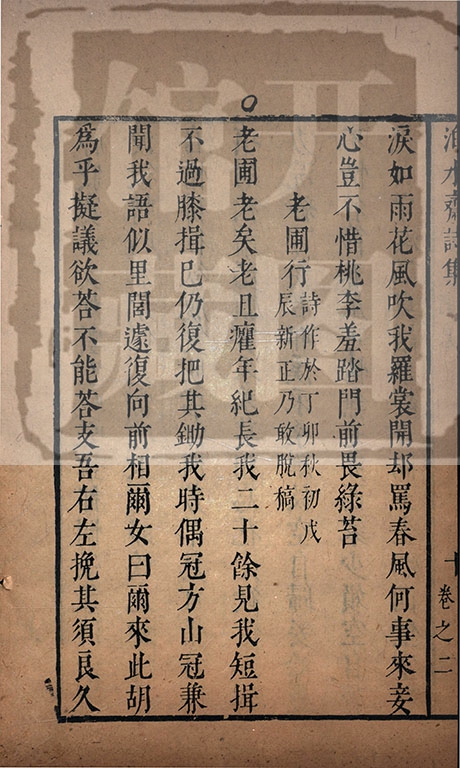 淚如雨花風吹我羅裳開却罵春風何事來妾
心豈不惜桃李羞踏門前畏綠苔
老圃行
詩作於丁卯秋初戊
辰新正乃敢脫稿
老圃老矣老且癯年紀長我二十餘見我短揖
不過膝揖已仍復把其鋤我時偶冠方山冠兼
聞我語似里閭遠復向前相爾女曰爾來此胡
爲乎擬議欲荅不能荅支吾右左挽其須良久
水齋詩集
卷之二